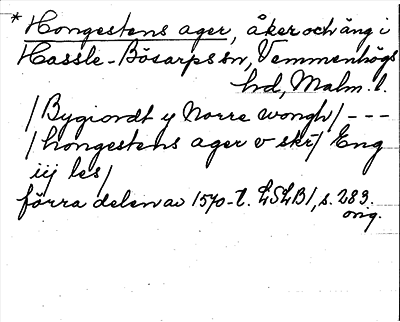 * Hongestens ager, åker och äng i
Hassle-Bösarps sn, Vemmenhögs
hd, Malm. l.
/Bygiordt y Norre wongh/ ---
/hongestens ager v skr/ Eng
iij les/
förra delen av 1570-t. LSLB1, s. 283.
orig.